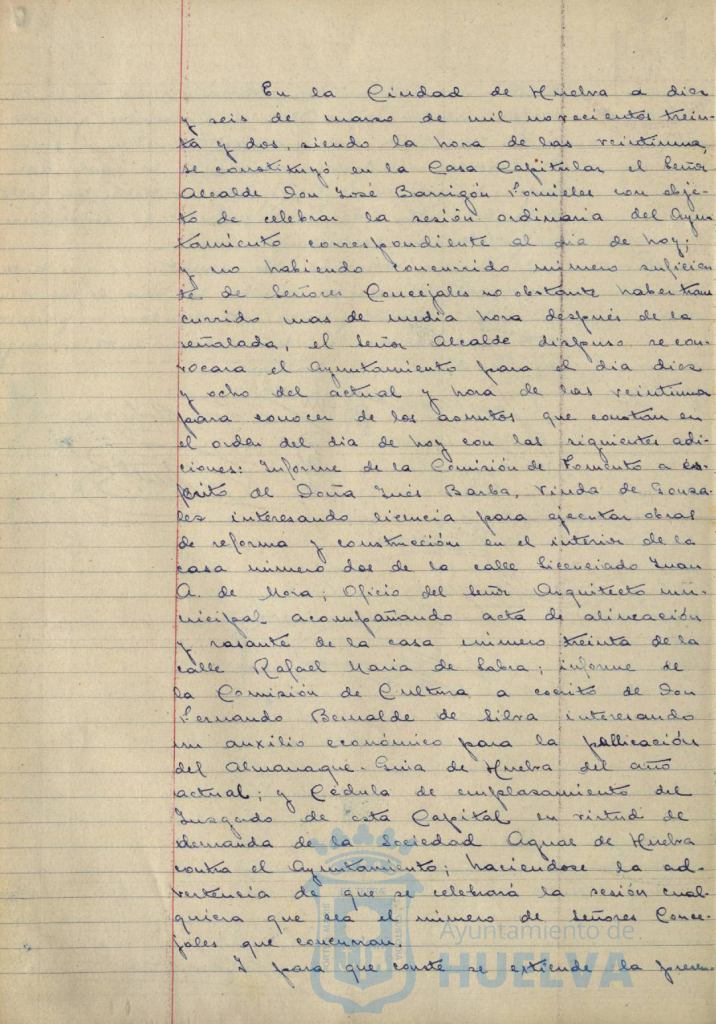 En la Ciudad de Huelva a diez
y seis de marzo de mil novecientos trein-
ta y dos, siendo la hora de las veintiuna,
se constituyó en la Casa Capitular el Señor
Alcalde Don José Barrigón Fornieles con obje-
to de celebrar la sesión ordinaria del Ayun-
tamiento correspondiente al dia de hoy;
y no habiendo concurrido número suficien-
te de Señores Concejales no obstante haber trans
currido mas de media hora después de la
señalada, el Señor Alcalde dispuso se con-
vocara el Ayuntamiento para el dia diez
y ocho del actual y hora de las veintiuna
para conocer de los asuntos que constan en
el orden del dia de hoy con las siguientes adi-
ciones: Informe de la Comisión de Fomento a es-
crito de Doña Inés Barba, Viuda de Gonza-
lez interesando licencia para ejecutar obras
de reforma y construcción en el interior de la
casa número dos de la calle Licenciado Juan
A. de Mora; Oficio del Señor Arquitecto mu-
nicipal acompañando acta de alineación
y rasante de la casa número treinta de la
calle Rafael Maria de Labra; informe de
la Comisión de Cultura a escrito de Don
Fernando Bernalde de Silva interesando
un auxilio económico para la publicación
del Almanaque-Guia de Huelva del año
actual; y Cédula de emplazamiento del
Juzgado de esta Capital en virtud de
demanda de la Sociedad Aguas de Huelva
contra el Ayuntamiento; haciendose la ad-
vertencia de que se celebrará la sesión cual-
quiera que sea el número de Señores Conce-
jales que concurran.
Y para que conste se extiende la presen-
Ayuntamiento de
HUELVA